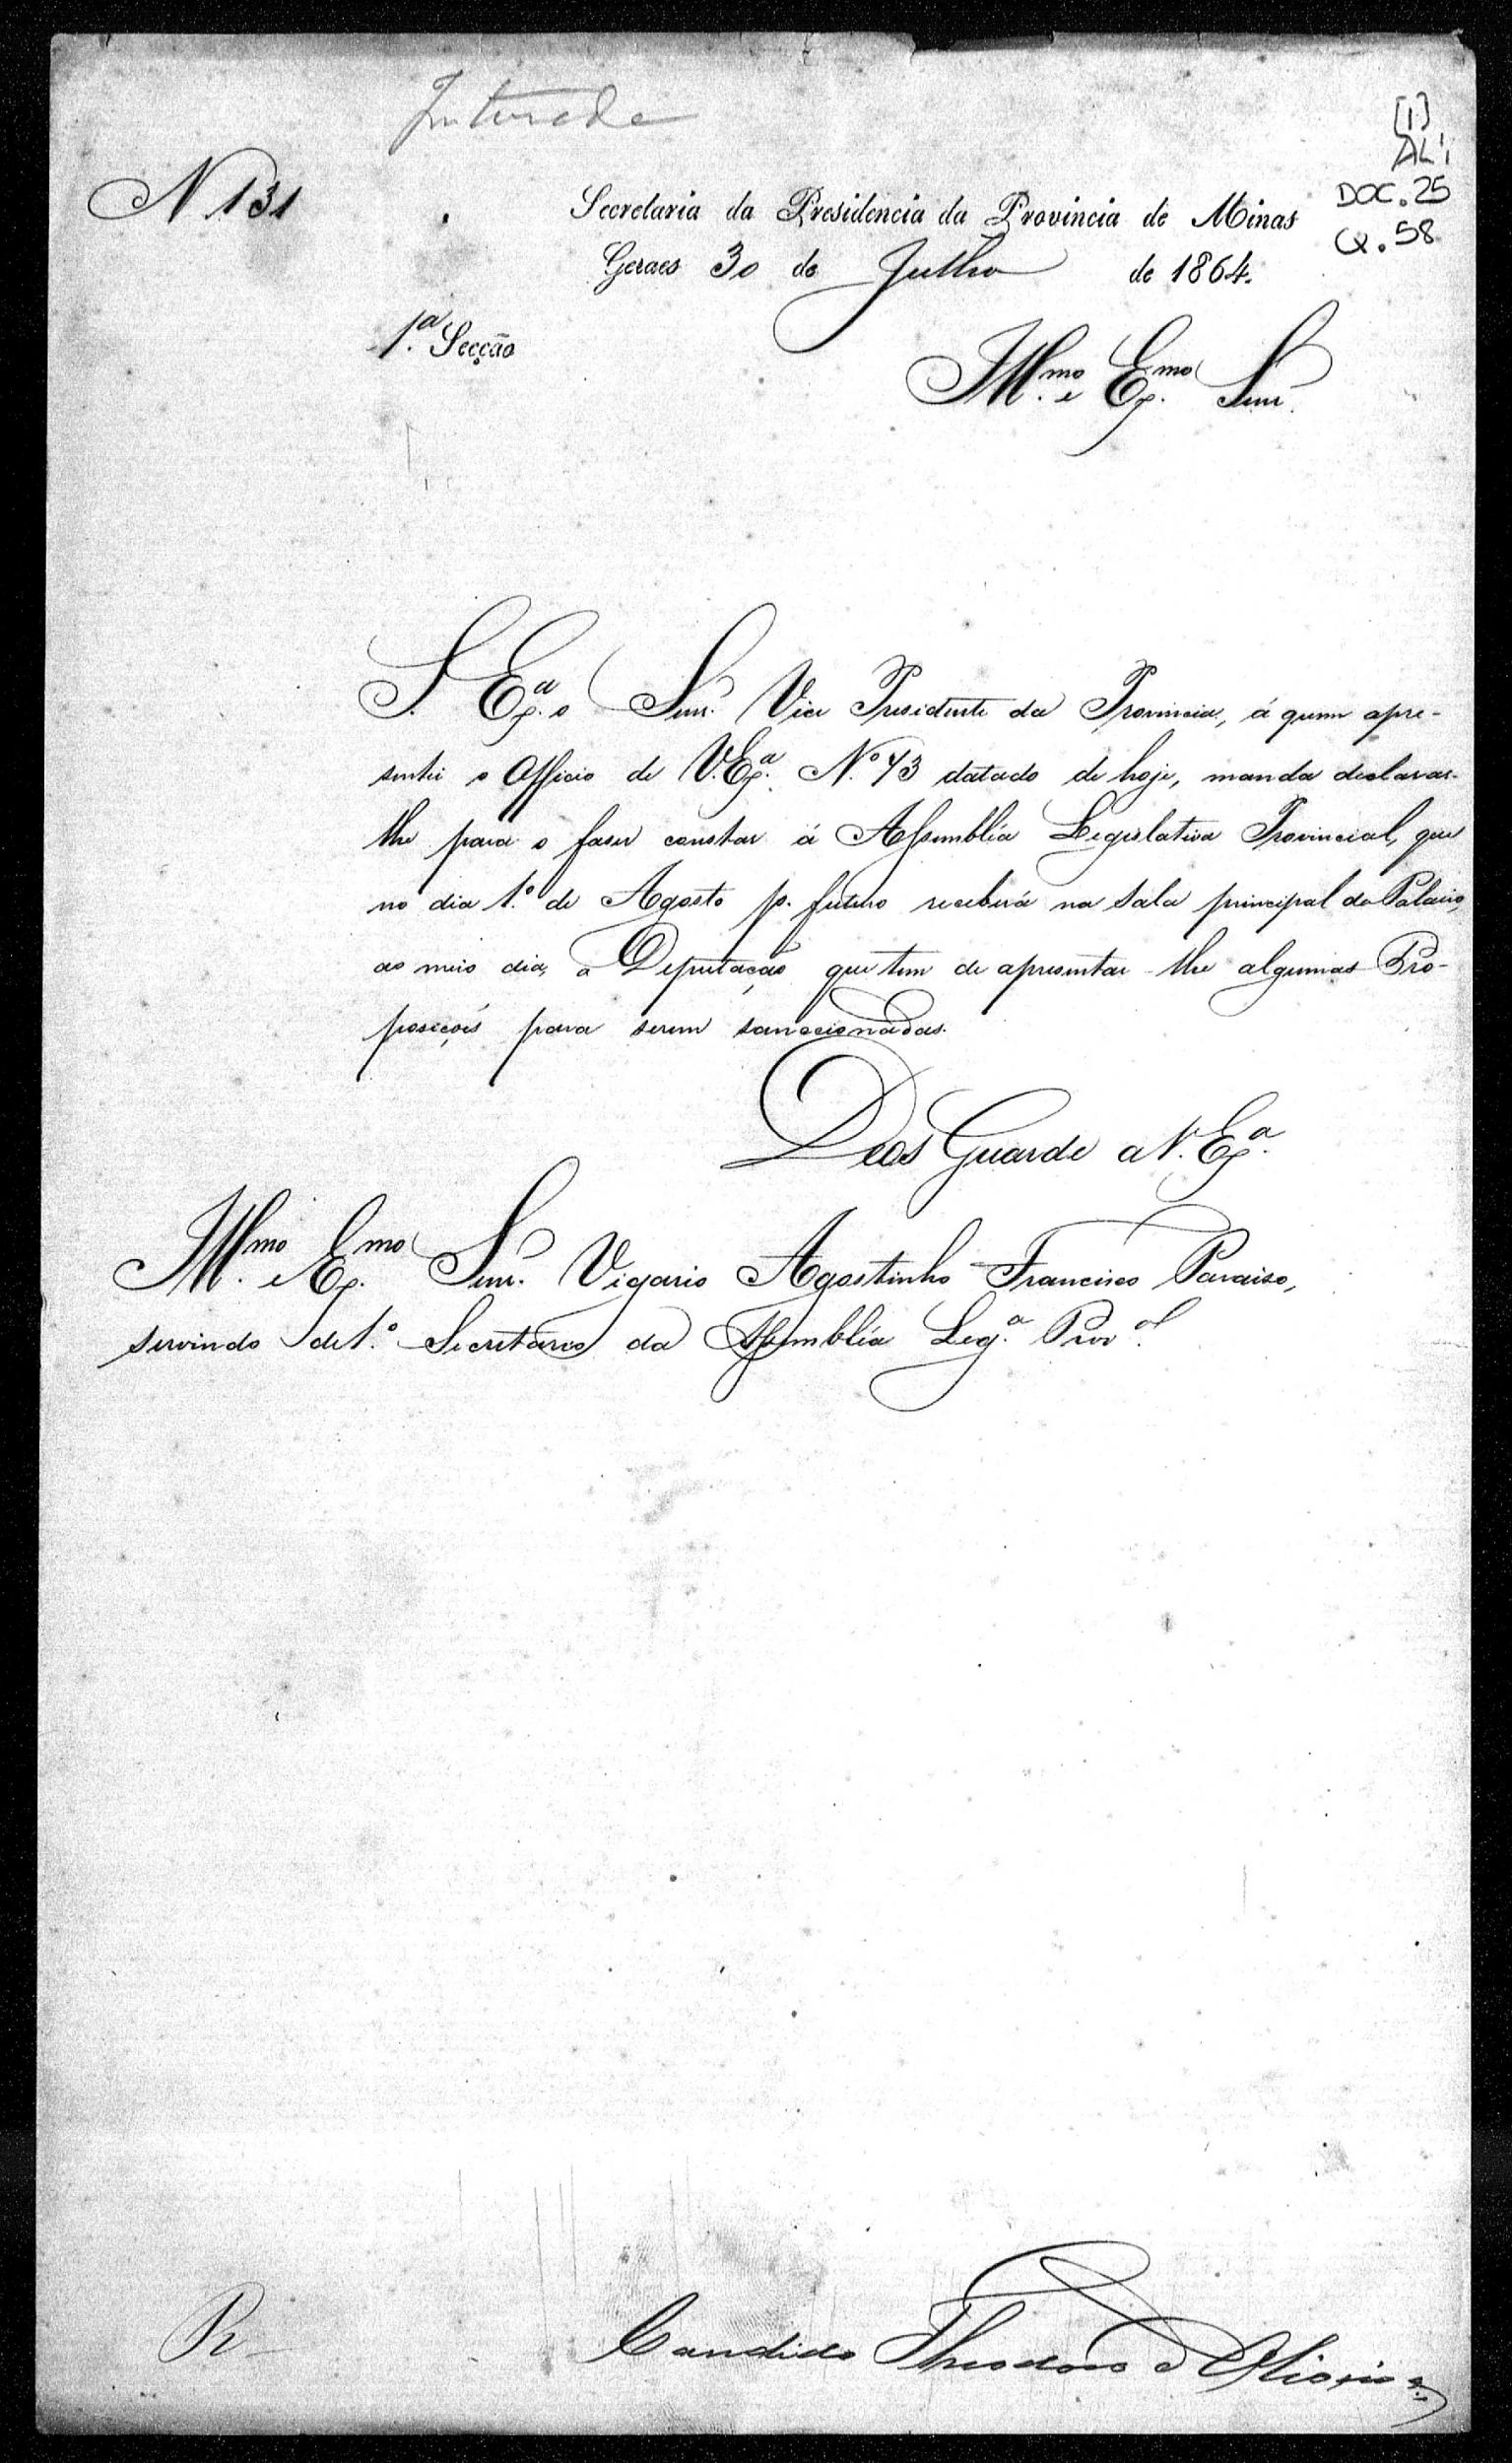 Inteirada
[1]
AL1
DOC. 25
CX. 58
N 131
Secretaria da Presidencia da Provincia de Minas
Geraes 30 de Julho de 1864.
1.ª Secção
Ill.mo e Ex.mo Snr.
S. Ex.ª o Snr. Vice Presidente da Provincia, á quem apre-
sentei o Officio de V. Ex.ª N.º 73 datado de hoje, manda declarar-
lhe para o faser constar á Assembléa Legislativa Provincial, que
no dia 1.º de Agosto p. futuro receberá na sala principal do Palacio,
ao meio dia, a Deputação que tem de apresentar-lhe algumas Pro-
posições para serem sanccionadas.
Deos Guarde a V. Ex.ª
Ill.mo e Ex.mo Snr. Vigario Agostinho Francisco Paraiso,
servindo de 1.º Secretario da Assembléa Leg.ª Prov.al
Candido Theodoro d'Oliveira